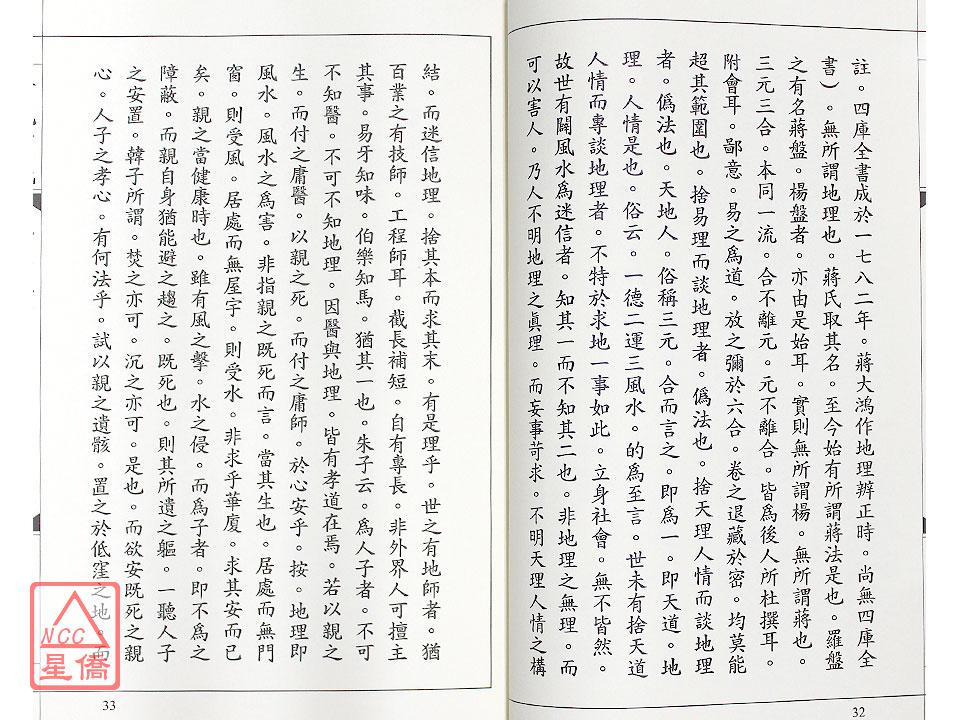 註。四庫全書成於一七八二年。蔣大鴻作地理辨正時。尚無四庫全
書）。無所謂地理也。蔣氏取其名。至今始有所謂蔣法是也。羅盤
之有名蔣盤。楊盤者。亦由是始耳。實則無所謂楊。無所謂蔣也。
三元三合。本同一流。合不離元。元不離合。皆為後人所杜撰耳。
附會耳。鄙意。易之為道。放之彌於六合。卷之退藏於密。均莫能
超其範圍也。捨易理而談地理者。偽法也。捨天理人情而談地理
者。偽法也。天地人。俗稱三元。合而言之。即為一。即天道。地
理。人情是也。俗云。一德二運三風水。的為至言。世未有捨天道
人情而專談地理者。不特於求地一事如此。立身社會。無不皆然。
故世有闢風水為迷信者。知其一而不知其二也。非地理之無理。而
可以害人。乃人不明地理之真理。而妄事苛求。不明天理人情之構
32
結。而迷信地理。捨其本而求其末。有是理乎。世之有地師者。猶
百業之有技師。工程師耳。截長補短。自有專長。非外界人可擅主
其事。易牙知味。伯樂知馬。猶其一也。朱子云。為人子者。不可
不知醫。不可不知地理。因醫與地理。皆有孝道在焉。若以親之
生。而付之庸醫。以親之死。而付之庸師。於心安乎。按。地理即
風水。風水之為害。非指親之既死而言。當其生也。居處而無門
窗。則受風。居處而無屋宇。則受水。非求乎華廈。求其安而已
矣。親之當健康時也。雖有風之擊。水之侵。而為子者。即不為之
障蔽。而親自身猶能避之趨之。既死也。則其所遺之軀。一聽人子
之安置。韓子所謂。焚之亦可。沉之亦可。是也。而欲安既死之親
心。人子之孝心。有何法乎。試以親之遺骸。置之於低窪之地。而
33
NCC
星僑